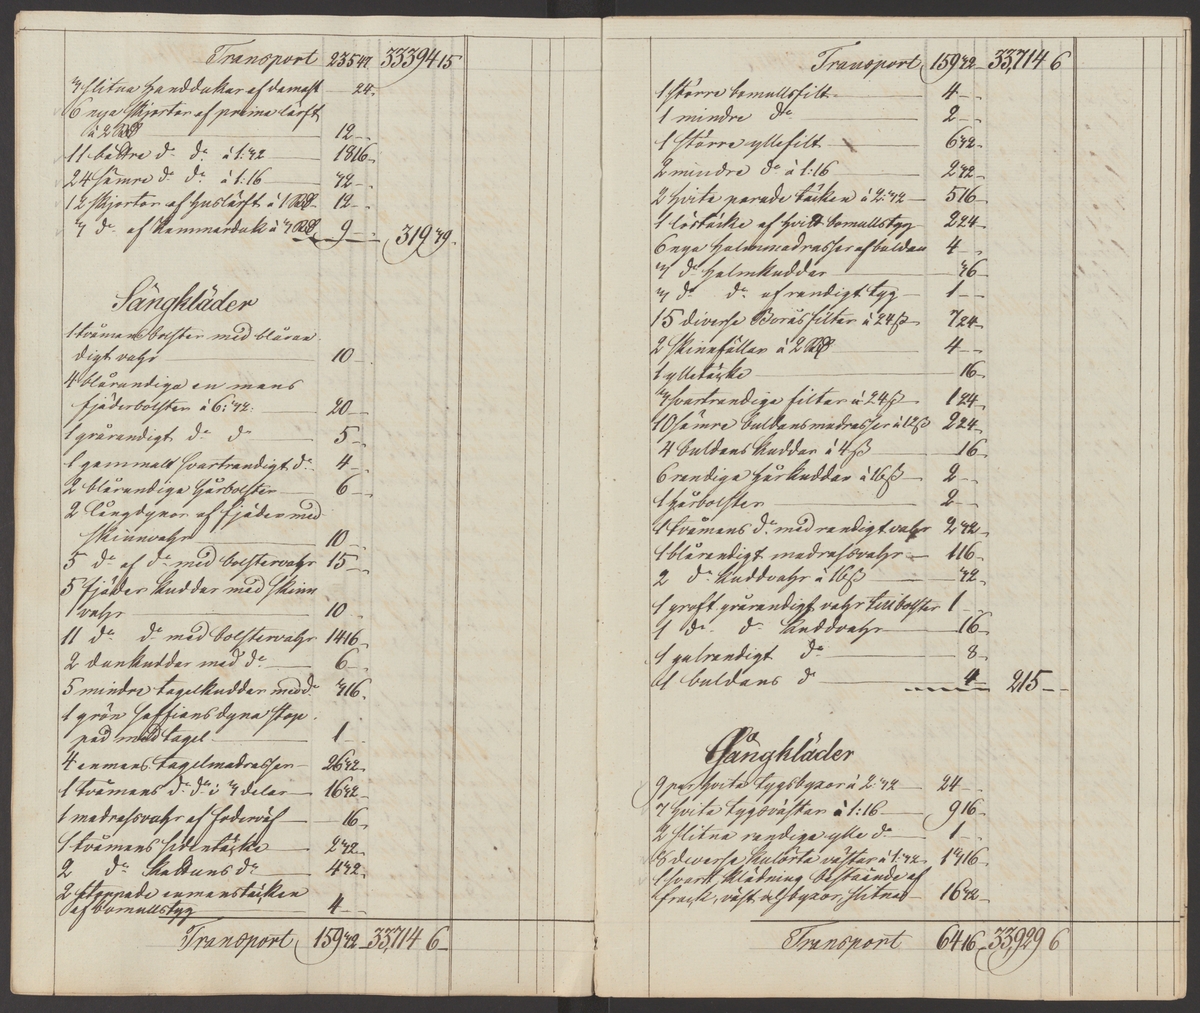 Transport 235 47 33394 15
3 slitna Handdukar af damast 24
6 nya Skjortor af prima lärft
à 2 Rd 12
11 bättre do do à 1:32 18 16
24 sämre do do à 1:16 32
12 Skjortor af Huslärft à 1 Rd 12
3 do af Kammarduk à 3 Rd 9 319 39
Sängkläder
1 tvåmans bolster med blåran
digt vahr 10
4 blårandiga en mans
fjäderbolster à 6:32 20
1 grårandigt do do 5
1 gammalt svartrandigt do 4
2 blårandiga Hårbolster 6
2 långdynor af fjäder med
Skinnvahr 10
5 do af do med bolstervahr 15
5 fjäder Kuddar med Skinn
vahr 10
11 do do med bolstervahr 14 16
2 dunkuddar med do 6
5 mindre tagelkuddar med do 3 16
1 grön saffians dyna stop
pad med tagel 1
4 enmans tagelmadrasser 26 32
1 tvåmans do do i 3 delar 16 32
1 madrassvahr af foderväf 16
1 tvåmans sidentäcke 2 32
2 do Kattuns do 4 32
2 stoppade enmanstäcken
af bomullstyg 4
Transport 159 32 33,714 6
Transport 159 32 33,714 6
1 större bomullsfilt 4
1 mindre do 2
1 större yllefilt 6 32
2 mindre do à 1:16 2 32
2 hvita warade täcken à 2:32 5 16
1 löstäcke af hvitt bomullstyg 2 24
6 nya Halmmadrasser af buldan 4
3 do Halmkuddar 36
3 do do af randigt tyg 1
15 diverse Boråsfilter à 24 ß 7 24
2 Skinnfällar à 2 Rd 4
1 ylletäcke 16
3 svartrandiga filtar à 24 ß 1 24
10 sämre buldansmadrasser à 12 ß 2 24
4 buldans Kuddar à 4 ß 16
6 randiga Hår Kuddar à 16 ß 2
1 Hårbolster 2
1 tvåmans do med randigt vahr 2 32
1 blårandigt madrassvahr 1 16
2 do Kuddvahr à 16 ß 32
1 groft grårandigt vahr till bolster 1
1 do do Kuddvahr 16
1 gulrandigt do 8
1 buldans do 4 215
Gångkläder
9 par hvita tygsbyxor à 2:32 24
7 hvita tygsvästar à 1:16 9 16
2 slitna randiga ylle do 1
8 diverse kulörta västar à 1:32 13 16
1 svart Klädning bestående af
frack, väst och byxor, slitna 16 32
Transport 64 16 33,929 6